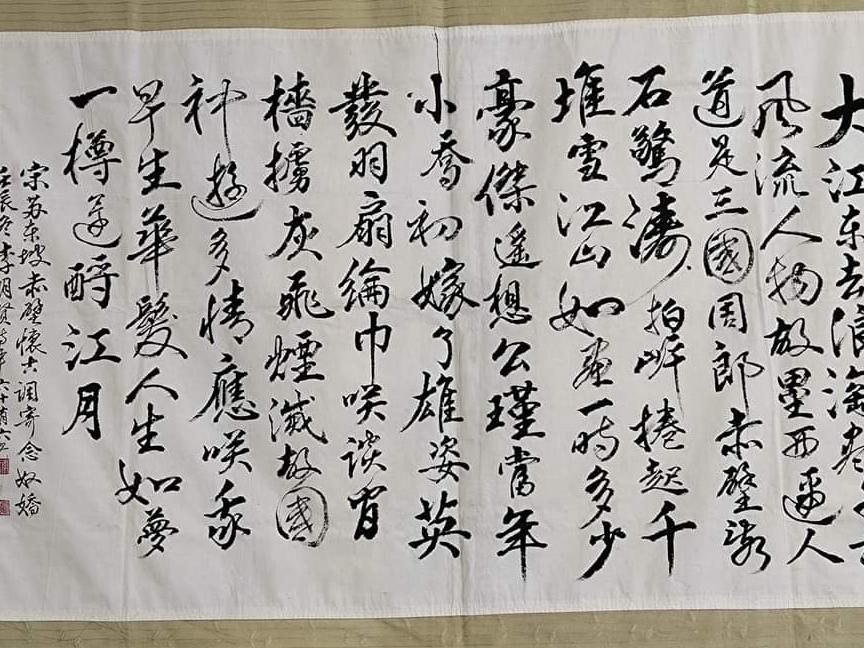 大江东去浪淘尽千古
風流人物故壘西邊人
道是三國周郎赤壁亂
石驚濤拍岸捲起千
堆雪江山如畫一時多少
豪傑遙想公瑾當年
小喬初嫁了雄姿英
發羽扇綸巾咲談間
檣擄灰飛煙滅故國
神遊多情應咲我
早生華髮人生如夢
一樽還酹江月
宋苏东坡赤壁懷古调寄念奴嬌
壬辰冬李明賢時年六十有六